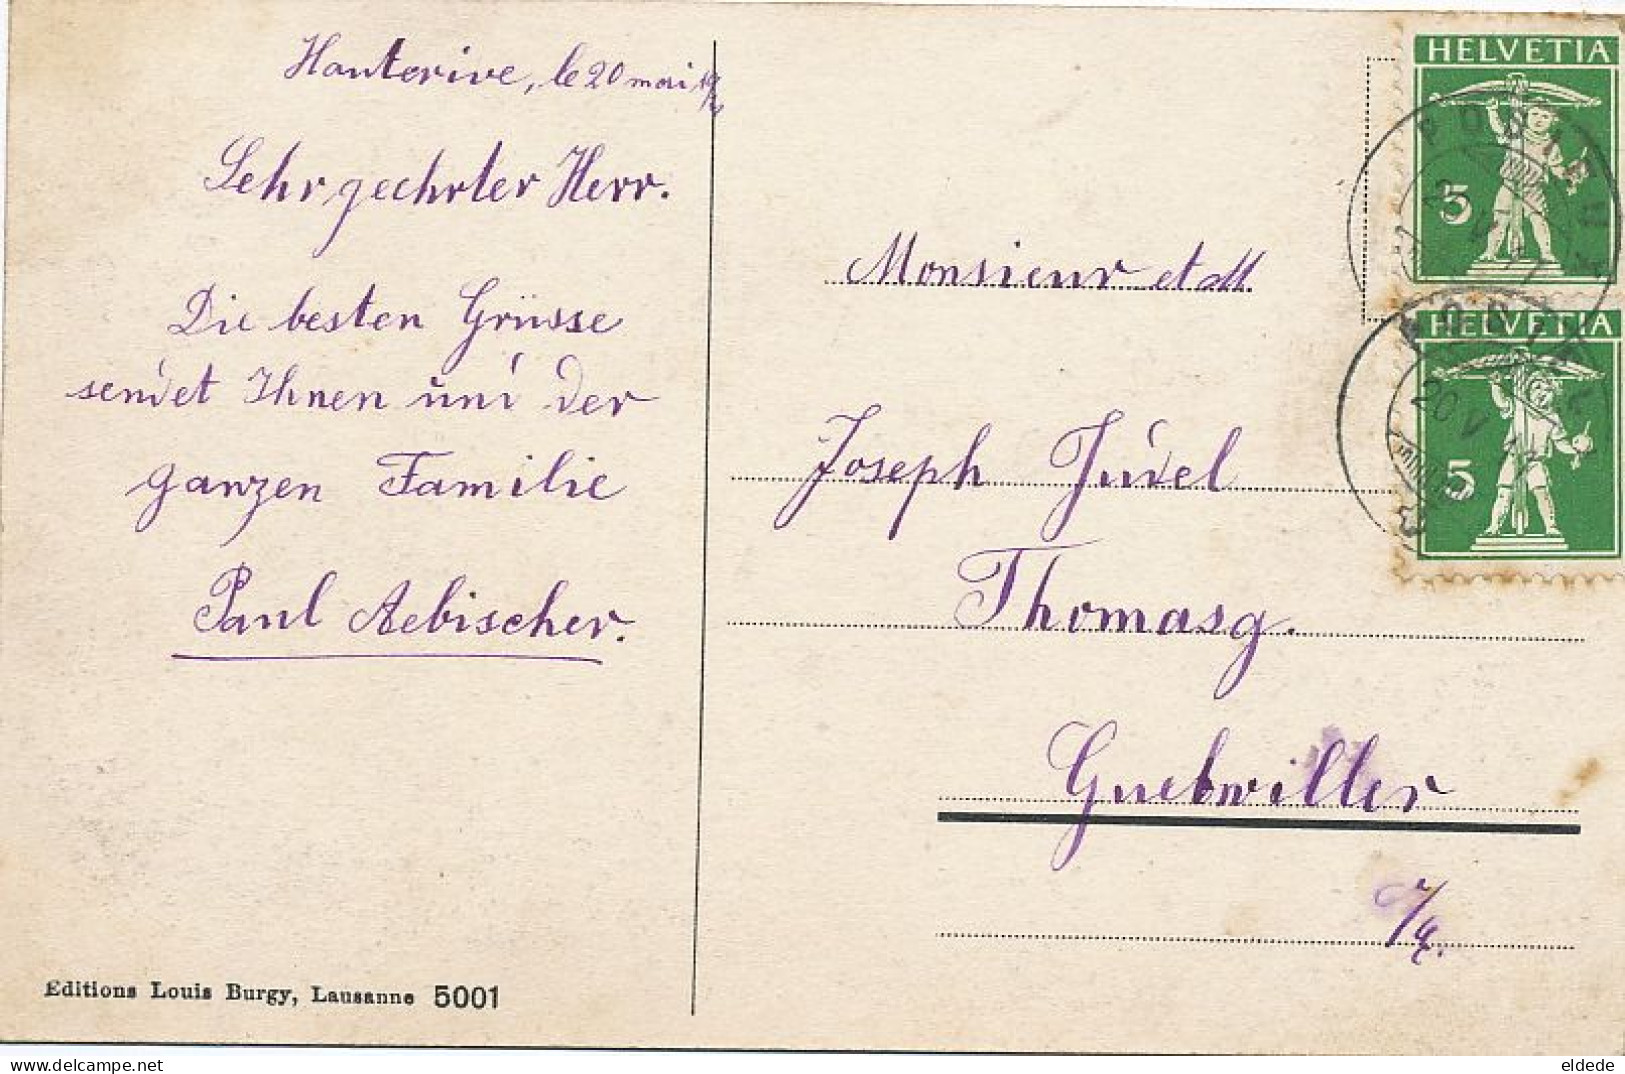 Hauterive, le 20 mai
Sehr geehrter Herr.
Die besten Grüsse
sendet Ihnen und der
ganzen Familie
Paul Aebischer.
Editions Louis Burgy, Lausanne 5001
HELVETIA
5
HELVETIA
5
20 V
Monsieur et M.
Joseph Judel
Thomasg.
Guebwiller
eldede